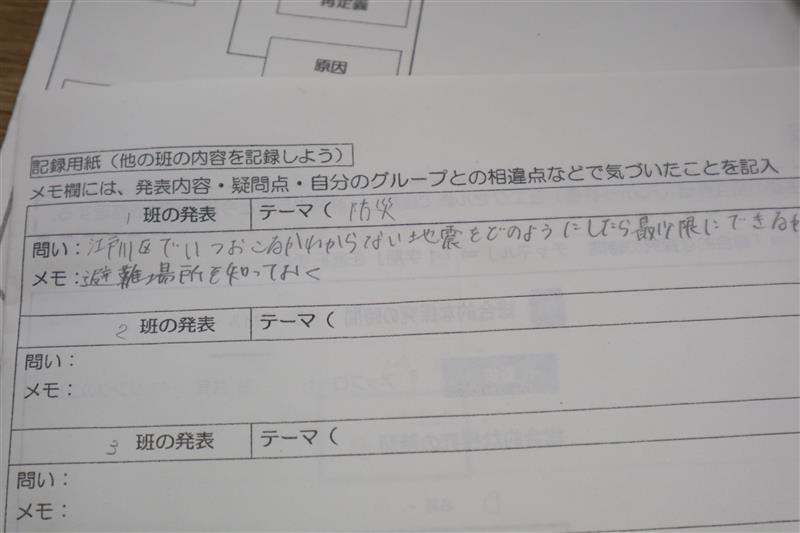 再定義
原因
記録用紙（他の班の内容を記録しよう）
メモ欄には、発表内容・疑問点・自分のグループとの相違点などで気づいたことを記入
1 班の発表 テーマ（ 防災
問い：江戸川区でいつおこるかわからない地震をどのようにしたら最小限にできるか
メモ：避難場所を知っておく
2 班の発表 テーマ（
問い：
メモ：
3 班の発表 テーマ（
問い：
メモ：